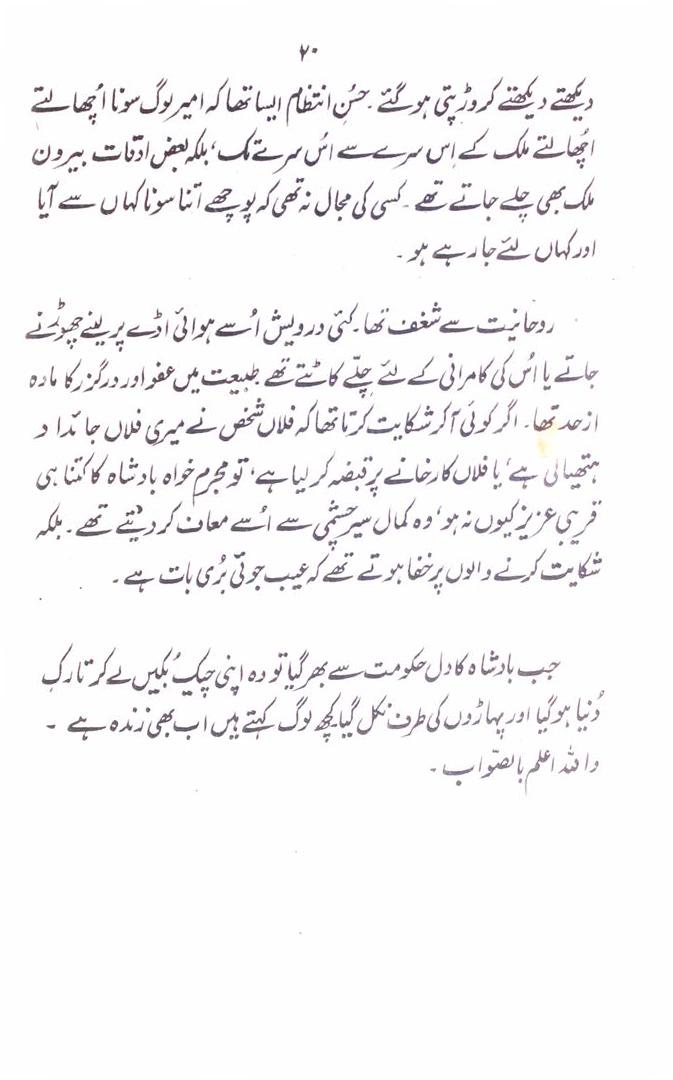 ۲۰
دیکھتے دیکھتے کروڑ پتی ہو گئے ۔ حُسنِ انتظام ایسا تھا کہ امیر لوگ سونا اُچھالتے
اُچھالتے ملک کے اِس سرے سے اُس سرے تک، بلکہ بعض اوقات بیرون
ملک بھی چلے جاتے تھے ۔ کسی کی مجال نہ تھی کہ پوچھے اتنا سونا کہاں سے آیا
اور کہاں لئے جا رہے ہو ۔
روحانیت سے شغف تھا۔ کئی درویش اُسے ہوائی اڈے پر لینے چھوڑنے
جاتے یا اُس کی کامرانی کے لئے چِلّے کاٹتے تھے طبیعت میں عفو اور درگزر کا مادہ
ازحد تھا۔ اگر کوئی آ کر شکایت کرتا تھا کہ فلاں شخص نے میری فلاں جائداد
ہتھیالی ہے، یا فلاں کارخانے پر قبضہ کر لیا ہے، تو مجرم خواہ بادشاہ کا کتنا ہی
قریبی عزیز کیوں نہ ہو، وہ کمال سیر چشمی سے اُسے معاف کر دیتے تھے ۔ بلکہ
شکایت کرنے والوں پر خفا ہوتے تھے کہ عیب جوئی بُری بات ہے ۔
جب بادشاہ کا دل حکومت سے بھر گیا تو وہ اپنی چیک بُکیں لے کر تارکِ
دُنیا ہو گیا اور پہاڑوں کی طرف نکل گیا کچھ لوگ کہتے ہیں اب بھی زندہ ہے ۔
واللہ اعلم بالصّواب ۔